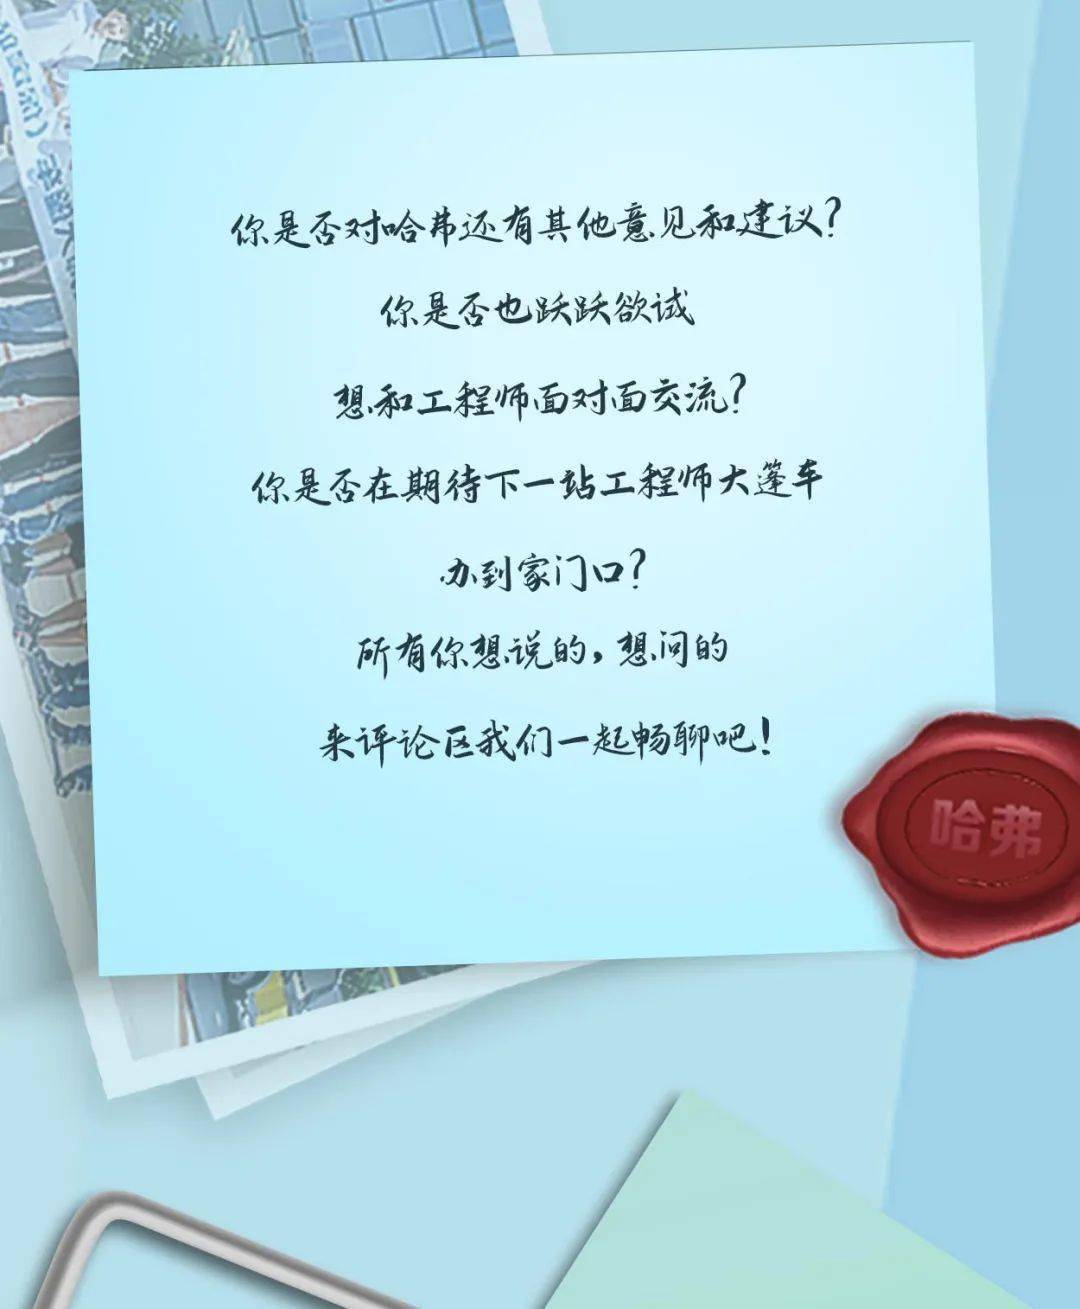 你是否对哈弗还有其他意见和建议?
你是否也跃跃欲试
想和工程师面对面交流?
你是否在期待下一站工程师大篷车
办到家门口?
所有你想说的,想问的
来评论区我们一起畅聊吧!
哈弗